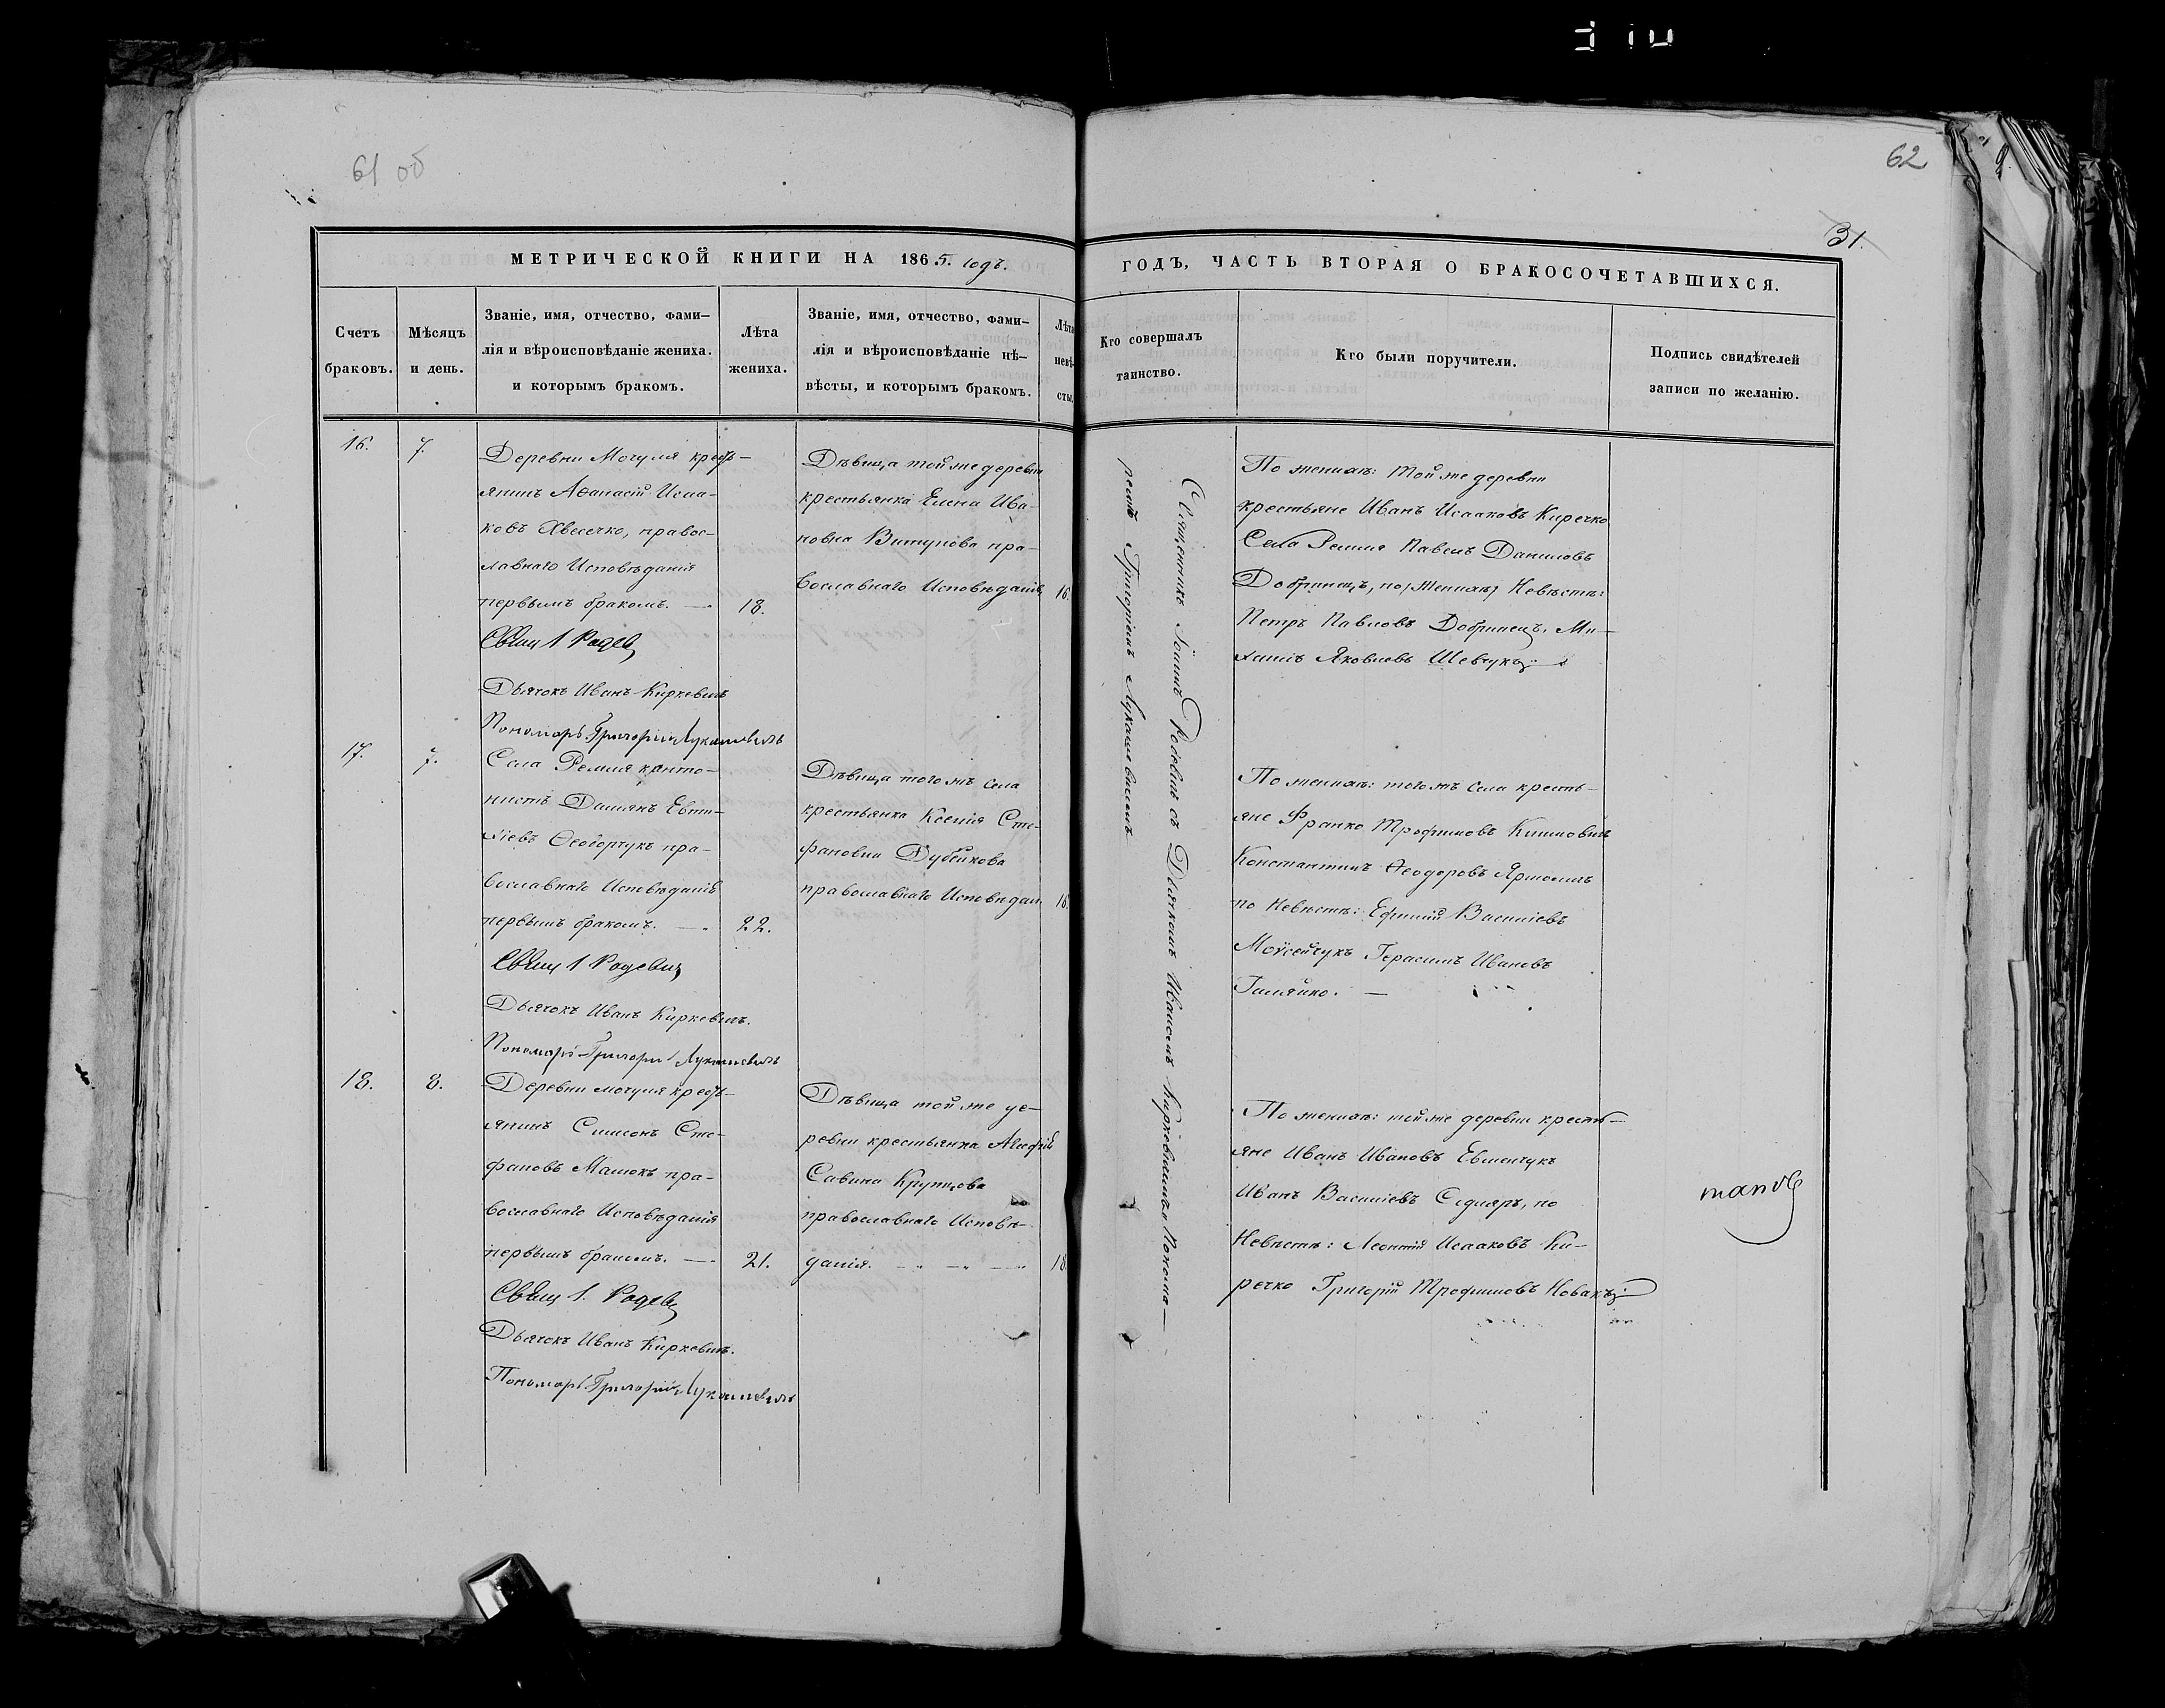 61 об
62
31.
МЕТРИЧЕСКОЙ КНИГИ НА 1865. годъ.
ГОДЪ, ЧАСТЬ ВТОРАЯ О БРАКОСОЧЕТАВШИХСЯ.
Счетъ
браковъ.
Мѣсяцъ
и день.
Званіе, имя, отчество, фами-
лія и вѣроисповѣданіе жениха.
и которымъ бракомъ.
Лѣта
жениха.
Званіе, имя, отчество, фами-
лія и вѣроисповѣданіе нѣ-
вѣсты, и которымъ бракомъ.
Лѣта
невѣ-
сты.
Кто совершалъ
таинство.
Кто были поручители.
Подпись свидѣтелей
записи по желанію.
16.
7.
Деревни Мочуля
янинъ Аѳанасій Исаа-
ковъ правос-
лавнаго Исповѣданія
первымъ бракомъ. —
18.
Свящ І Радев
Дьячокъ Иванъ Киркевичъ
Пономарь Григорій Лукашевичъ
Дѣвица той же деревни
крестьянка Елена Ива-
новна Витунова пра-
вославнаго Исповѣданія
16.
По женихѣ: той же деревни
крестьяне Иванъ Исааковъ Киречко
Села Ремля Павелъ Даниловъ
Добринецъ, по (женихѣ) Невѣстѣ:
Петръ Павловъ Добринецъ, Ми-
хаилъ Яковлевъ Шевчукъ
Священникъ Іоаннъ с Дьячкомъ Иваномъ Киркевичемъ и Понома-
ремъ Григоріемъ Лукашевичемъ
17.
7.
Села Ремля канто-
нистъ Даміянъ Евти-
хіевъ Ѳеодорчукъ пра-
вославнаго Исповѣданія
первымъ бракомъ. —
22.
Свящ І Радевич
Дьячокъ Иванъ Киркевичъ.
Пономарь Григорій Лукашевичъ
Дѣвица того жъ села
крестьянка Ксенія Сте-
фановна Дубейкова
православнаго Исповѣдан.
16.
По женихѣ: того жъ села кресть-
яне Франко Трофимовъ Климовичъ
Константинъ Ѳеодоровъ
по Невѣстѣ: Ефимій Василіевъ
Моисейчукъ Герасимъ Ивановъ
Гиляйко. —
18.
8.
Деревни мочуля
янинъ Симеонъ Сте-
фановъ Машокъ пра-
вославнаго Исповѣданія
первымъ бракомъ. —
21.
Свящ І. Радев
Дьячокъ Иванъ Киркевичъ.
Пономарь Григорій Лукашевичъ
Дѣвица той же де-
ревни крестьянка
Савина Крупцова
православнаго Исповѣ-
данія.
18.
По женихѣ: той же деревни кресть-
яне Иванъ Ивановъ Евменчукъ
Иванъ Василіевъ Седляръ, по
Невѣстѣ: Леонтій Исааковъ Ки-
речко Григорій Трофимовъ Новакъ